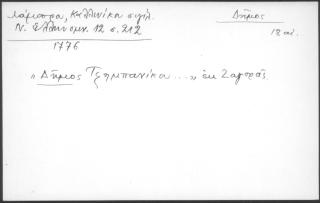 Λάμπρου, Κελλινίκα σιγίλ.
Ν. Ελληνομν. 12 σ. 212
1776
Δῆμος
18 αἰ.
"Δῆμος Τζημπανίκα...." ἐκ Ζαγορᾶς